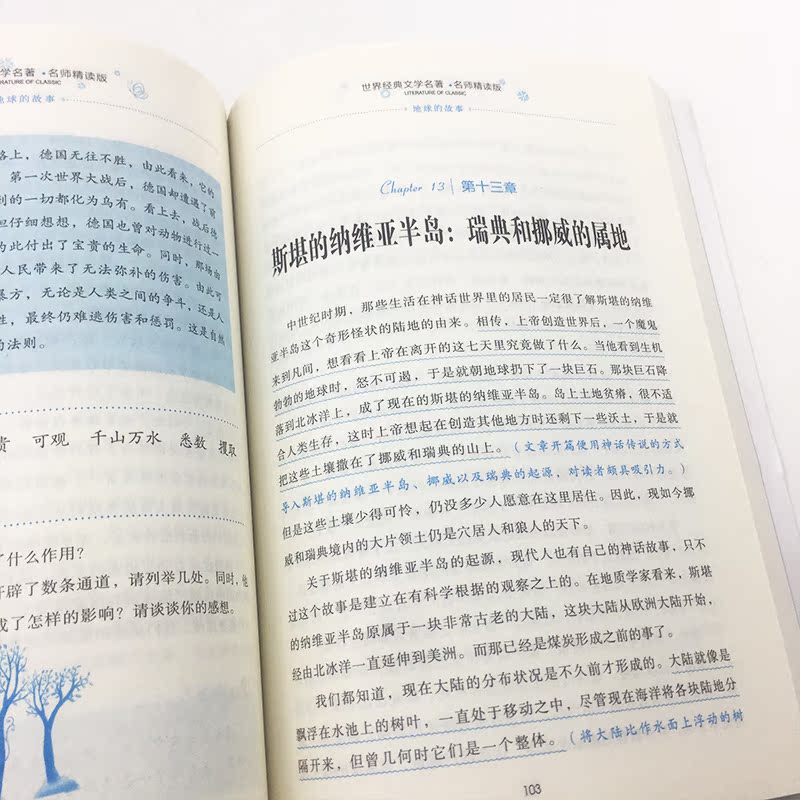 学名著·名师精读版
RATURE OF CLASSIC
地球的故事
路上，德国无往不胜，由此看来，它的
第一次世界大战后，德国却遭遇了前
到的一切都化为乌有。看上去，战后德
但仔细想想，德国也曾对动物进行过一
为此付出了宝贵的生命。同时，那场由
人民带来了无法弥补的伤害。由此可
暴方，无论是人类之间的争斗，还是人
性，最终仍难逃伤害和惩罚。这是自然
的法则。
贵 可观 千山万水 悉数 攫取
了什么作用？
开辟了数条通道，请列举几处。同时，他
成了怎样的影响？请谈谈你的感想。
世界经典文学名著·名师精读版
LITERATURE OF CLASSIC
地球的故事
Chapter 13 | 第十三章
斯堪的纳维亚半岛：瑞典和挪威的属地
中世纪时期，那些生活在神话世界里的居民一定很了解斯堪的纳维
亚半岛这个奇形怪状的陆地的由来。相传，上帝创造世界后，一个魔鬼
来到凡间，想看看上帝在离开的这七天里究竟做了什么。当他看到生机
勃勃的地球时，怒不可遏，于是就朝地球扔下了一块巨石。那块巨石降
落到北冰洋上，成了现在的斯堪的纳维亚半岛。岛上土地贫瘠，很不适
合人类生存，这时上帝想起在创造其他地方时还剩下一些沃土，于是就
把这些土壤撒在了挪威和瑞典的山上。（文章开篇使用神话传说的方式
导入斯堪的纳维亚半岛、挪威以及瑞典的起源，对读者颇具吸引力。）
但是这些土壤少得可怜，仍没多少人愿意在这里居住。因此，现如今挪
威和瑞典境内的大片领土仍是穴居人和狼人的天下。
关于斯堪的纳维亚半岛的起源，现代人也有自己的神话故事，只不
过这个故事是建立在有科学根据的观察之上的。在地质学家看来，斯堪
的纳维亚半岛原属于一块非常古老的大陆，这块大陆从欧洲大陆开始，
经由北冰洋一直延伸到美洲。而那已经是煤炭形成之前的事了。
我们都知道，现在大陆的分布状况是不久前才形成的。大陆就像是
飘浮在水池上的树叶，一直处于移动之中，尽管现在海洋将各块陆地分
隔开来，但曾几何时它们是一个整体。（将大陆比作水面上浮动的树
103